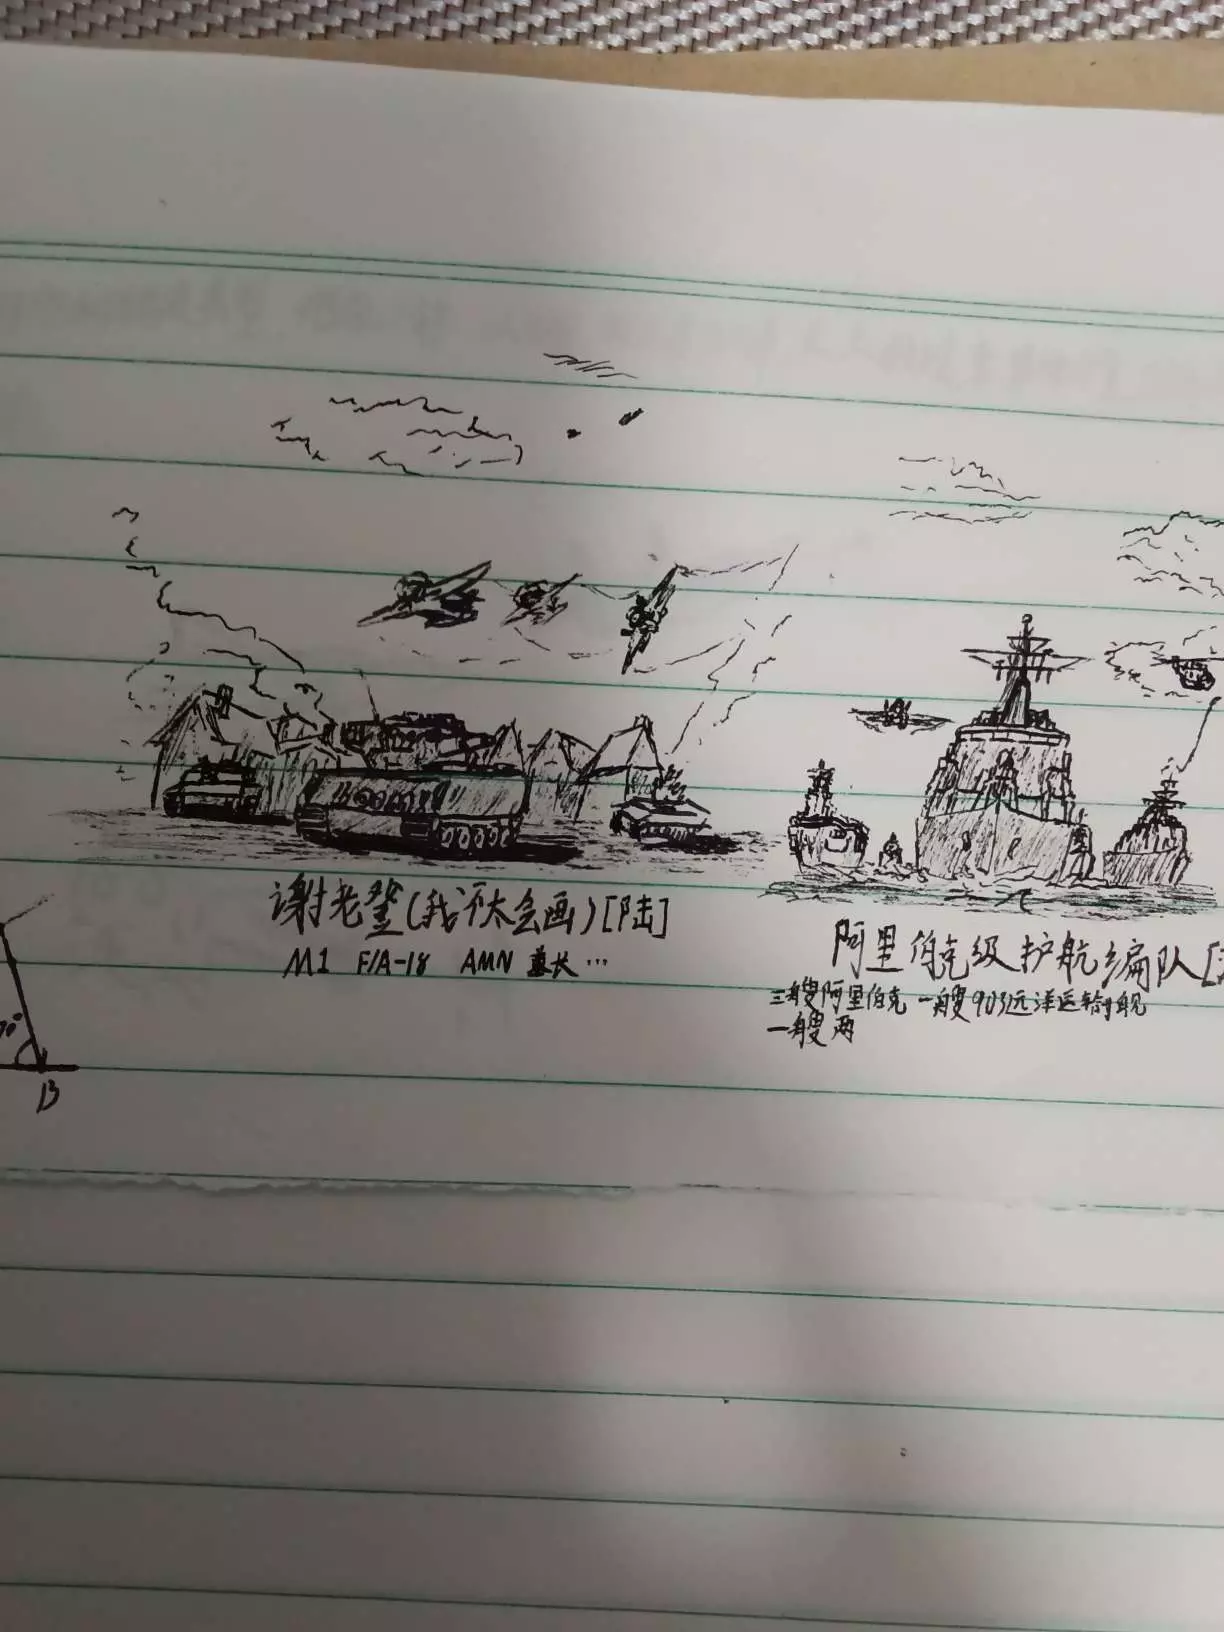 谢老登(我不太会画)[陆]
M1 F/A-18 AMN 蓋长…
阿里伯克级护航编队[
三艘阿里伯克 一艘903远洋运输舰
一艘两
70°
B